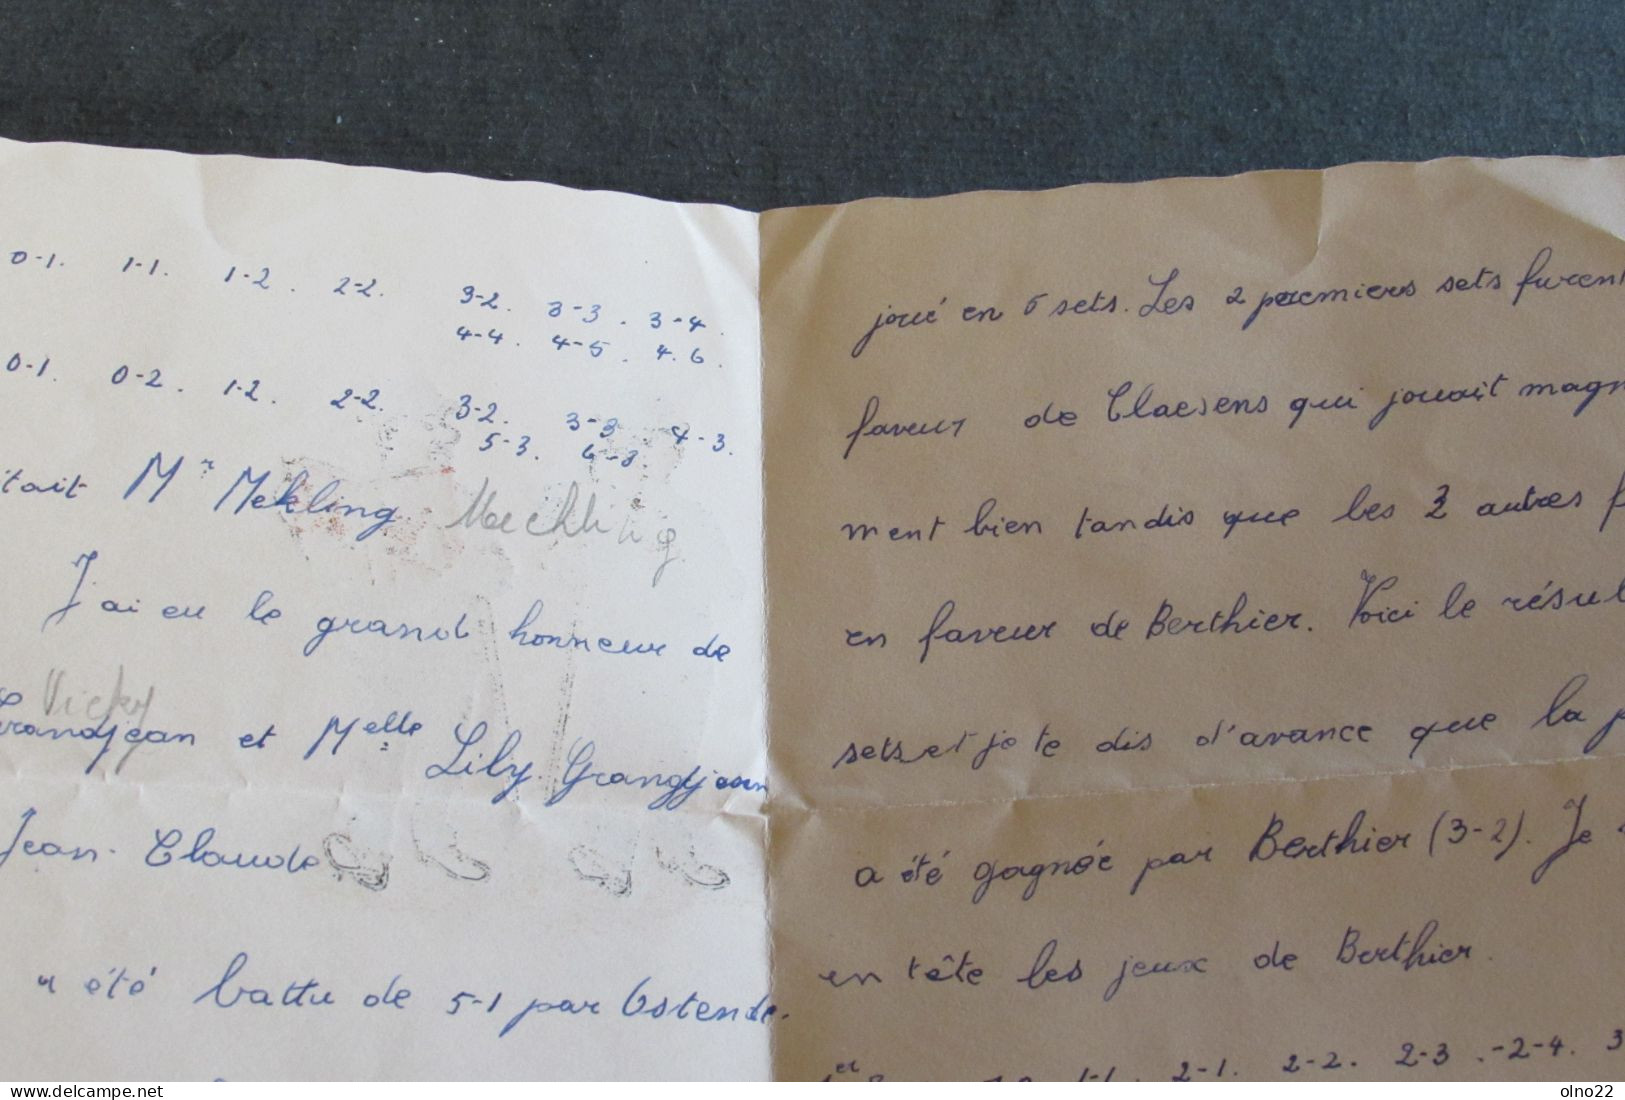 0-1. 1-1. 1-2. 2-2. 3-2. 3-3. 3-4.
4-4. 4-5. 4.6.
0-1. 0-2. 1-2. 2-2. 3-2. 3-3 4-3.
5-3. 6-3
tait Mr Mekling Mechling
J'ai eu le grand honneur de
Vicky
Grandjean et Melle Lily Grandjean
Jean-Claude
a été battu de 5-1 par Ostende.
joué en 5 sets. Les 2 premiers sets furent
faveur de Claesens qui jouait magn
ment bien tandis que les 3 autres f
en faveur de Berthier. Voici le résul
sets et je te dis d'avance que la p
a été gagnée par Berthier (3-2). Je
en tête les jeux de Berthier.
1er 1-1. 2-1. 2-2. 2-3. -2-4. 3
delcampe.net
olno22